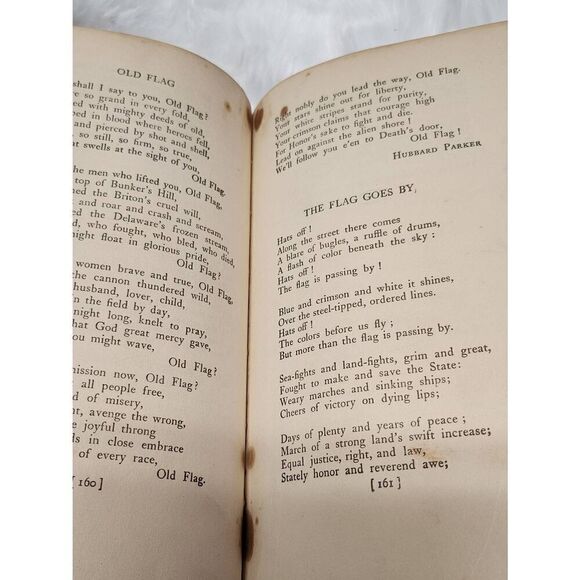 OLD FLAG
shall I say to you, Old Flag?
so grand in every fold,
with mighty deeds of old,
in blood where heroes fell,
and pierced by shot and shell,
so still, so firm, so true,
at swells at the sight of you,
Old Flag.
the men who lifted you, Old Flag,
top of Bunker's Hill,
the Briton's cruel will,
and roar and crash and scream,
the Delaware's frozen stream,
who fought, who bled, who died,
might float in glorious pride,
Old Flag?
women brave and true, Old Flag,
the cannon thundered wild,
husband, lover, child,
in the field by day,
night long, knelt to pray,
that God great mercy gave,
you might wave,
Old Flag?
mission now, Old Flag?
all people free,
of misery,
avenge the wrong,
joyful throng
in close embrace
of every race,
Old Flag.
[160]
Right nobly do you lead the way, Old Flag.
Your stars shine out for liberty,
Your white stripes stand for purity,
Your crimson claims that courage high
For Honor's sake to fight and die.
Lead on against the alien shore!
We'll follow you e'en to Death's door,
Old Flag!
HUBBARD PARKER
THE FLAG GOES BY
Hats off!
Along the street there comes
A blare of bugles, a ruffle of drums,
A flash of color beneath the sky:
Hats off!
The flag is passing by!
Blue and crimson and white it shines,
Over the steel-tipped, ordered lines.
Hats off!
The colors before us fly;
But more than the flag is passing by.
Sea-fights and land-fights, grim and great,
Fought to make and save the State:
Weary marches and sinking ships;
Cheers of victory on dying lips;
Days of plenty and years of peace;
March of a strong land's swift increase;
Equal justice, right, and law,
Stately honor and reverend awe;
[161]